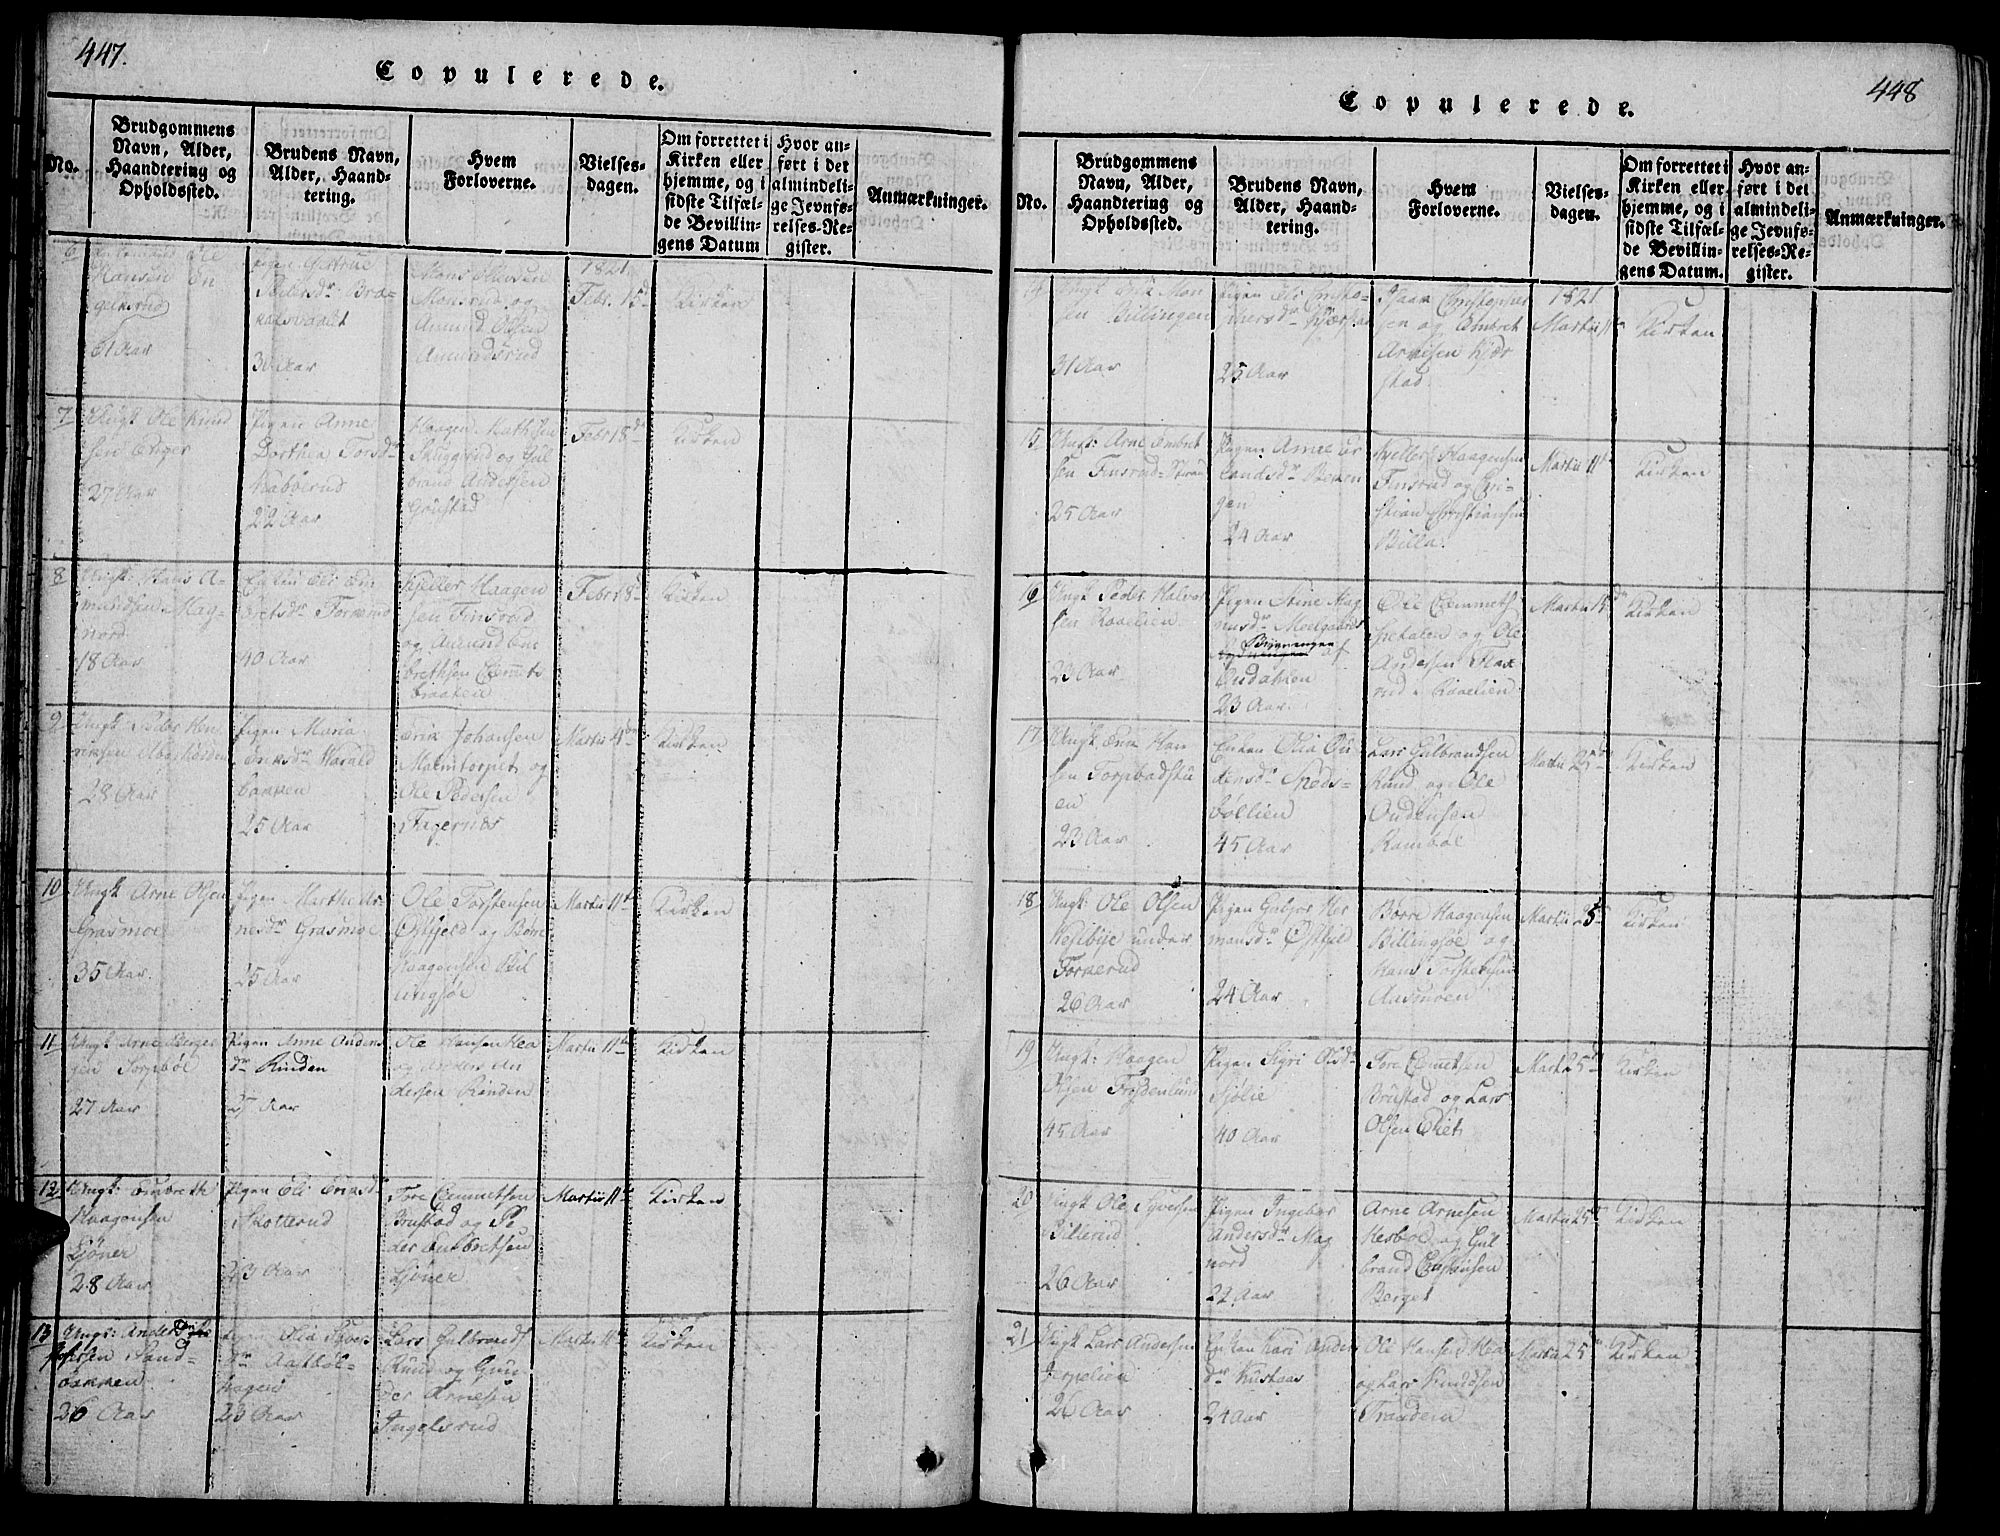 447.
Copulerede.
No.
Brudgommens
Navn, Alder,
Haandtering og
Opholdssted.
Brudens Navn,
Alder, Haand-
tering.
Hvem
Forloverne.
Vielses-
dagen.
Om forrettet i
Kirken eller
hjemme, og i
sidste Tilfæl-
de Bevillin-
gens Datum
Hvor an-
ført i det
almindeli-
ge Jevnfø-
relses-Re-
gister.
Anmærkninger.
6
Ole
Hansen En
gelksrud
61 Aar
Pedersdr Bra-
30 Aar
Mons
Monsrud og
Amund Olsen
Amundsrud
1821
Febr. 15d
Kirken
7
Ungk Ole Knud
sen Enger
27 Aar
Pigen Anne
Dorthea Torsdr
Kabberud
22 Aar
Haagen Mathisen
Skuggrud og Gul
brand Andersen
Goustad
Febr 18de
Kirken
8
Ungk: Hans A-
mundsen Mag-
nord
18 Aar
Enken Eli Em
bretsdr
40 Aar
Kieller Haagen
sen Finsrud
og Amund Em
brethsen Emmets
braaten
Febr 18d
Kirken
9
Ungk: Peder Hen
riksen
28 Aar
Pigen Maria
Eriksdr Harald
bakken
25 Aar
Erik Johansen
Malmtorpet og
Ole Pedersen
Fagernæs
Martii 4de
Kirken
10
Ungk Arne Olsen
Grasmoe
35 Aar
Pigen Marthe Ar
nesdr Grasmoe
25 Aar
Ole Torstensen
Østfjeld og Børre
Haagensen Bil
lingsøe
Martii 11te
Kirken
11
Ungk: Arne Børger
sen Torpbøl
27 Aar
Pigen Anne Oudens
dr Rinden
Aar
Ole Hansen Hea
og Anders An
dersen Rinden
Martii 11te
Kirken
12
Ungk: Embreth
Haagensen
Sjøner
28 Aar
Pigen Eli Eriksdr
Skotterud
23 Aar
Tore Emmetsen
Brustad og Pe
der Embretsen
Sjøner
Martii 11te
Kirken
13
Ungk: Anders
Sand-
bakken
36 Aar
Pigen Olia
dr
hagen
23 Aar
Lars Gulbrands
Rund og Gun
der Arnesen
Ingelsrud
Martii 11te
Kirken
448
Copulerede.
No.
Brudgommens
Navn, Alder,
Haandtering og
Opholdssted.
Brudens Navn,
Alder, Haand-
tering.
Hvem
Forloverne.
Vielses-
dagen.
Om forrettet i
Kirken eller
hjemme, og i
sidste Tilfæl-
de Bevillin-
gens Datum.
Hvor an-
ført i det
almindeli-
ge Jevnfø-
relses-Re-
gister.
Anmærkninger.
14
Ungk Erik Mon
sen Billingen
31 Aar
Pigen Eli Christo-
phersdr Kjærstad
25 Aar
Isaak Christophers
sen og Embret
Arnesen Kjær
stad
1821
Martii 11te
Kirken
15
Ungk: Arne Embret
sen Finsrud
25 Aar
Pigen Anne Er
landsdr
24 Aar
Kieller Haagensen
Finsrud og Chri-
stian Christiansen
Billa
Martii 11te
Kirken
16
Ungk Peder Halvor
sen Rovelien
23 Aar
Pigen Stine Mag
nusdr Moelgaards
Bygningen
af
23 Aar
Emmeth
og Ole
Andersen Flax
rud i Rovelien
Martii 15de
Kirken
17
Ungk Erik Han
sen Torpbadstu
en
23 Aar
Enken Olia Ou
densdr Speds-
bøllien
45 Aar
Lars Gulbrandsen
Rund og Ole
Oudensen
Rambøl
Martii 25de
Kirken
18
Ungk: Ole Olsen
Vestbye under
Tornerud
26 Aar
Pigen Gubjør Her
mansdr Østfjeld
24 Aar
Børre Haagensen
Billingsøe og
Hans Torstensen
Aasmoen
Martii 25de
Kirken
19
Ungk: Haagen
Olsen
45 Aar
Pigen Sigri Olsdr
Sjølie
40 Aar
Tore Emmetsen
Brustad og Lars
Olsen Eket
Marti 25de
Kirken
20
Ungk Ole Syversen
Billerud
26 Aar
Pigen Ingebør
Andersdr Mag
nord
22 Aar
Arne Arnesen
Hesbøl og Gul
brand
Berget
Martii 25de
Kirken
21
Ungk Lars Andersen
Jerpelien
26 Aar
Enken Kari Anders
dr Kustaas
24 Aar
Ole Hansen Hea
og Lars Knudsen
Tranderu
Martii 25de
Kirken